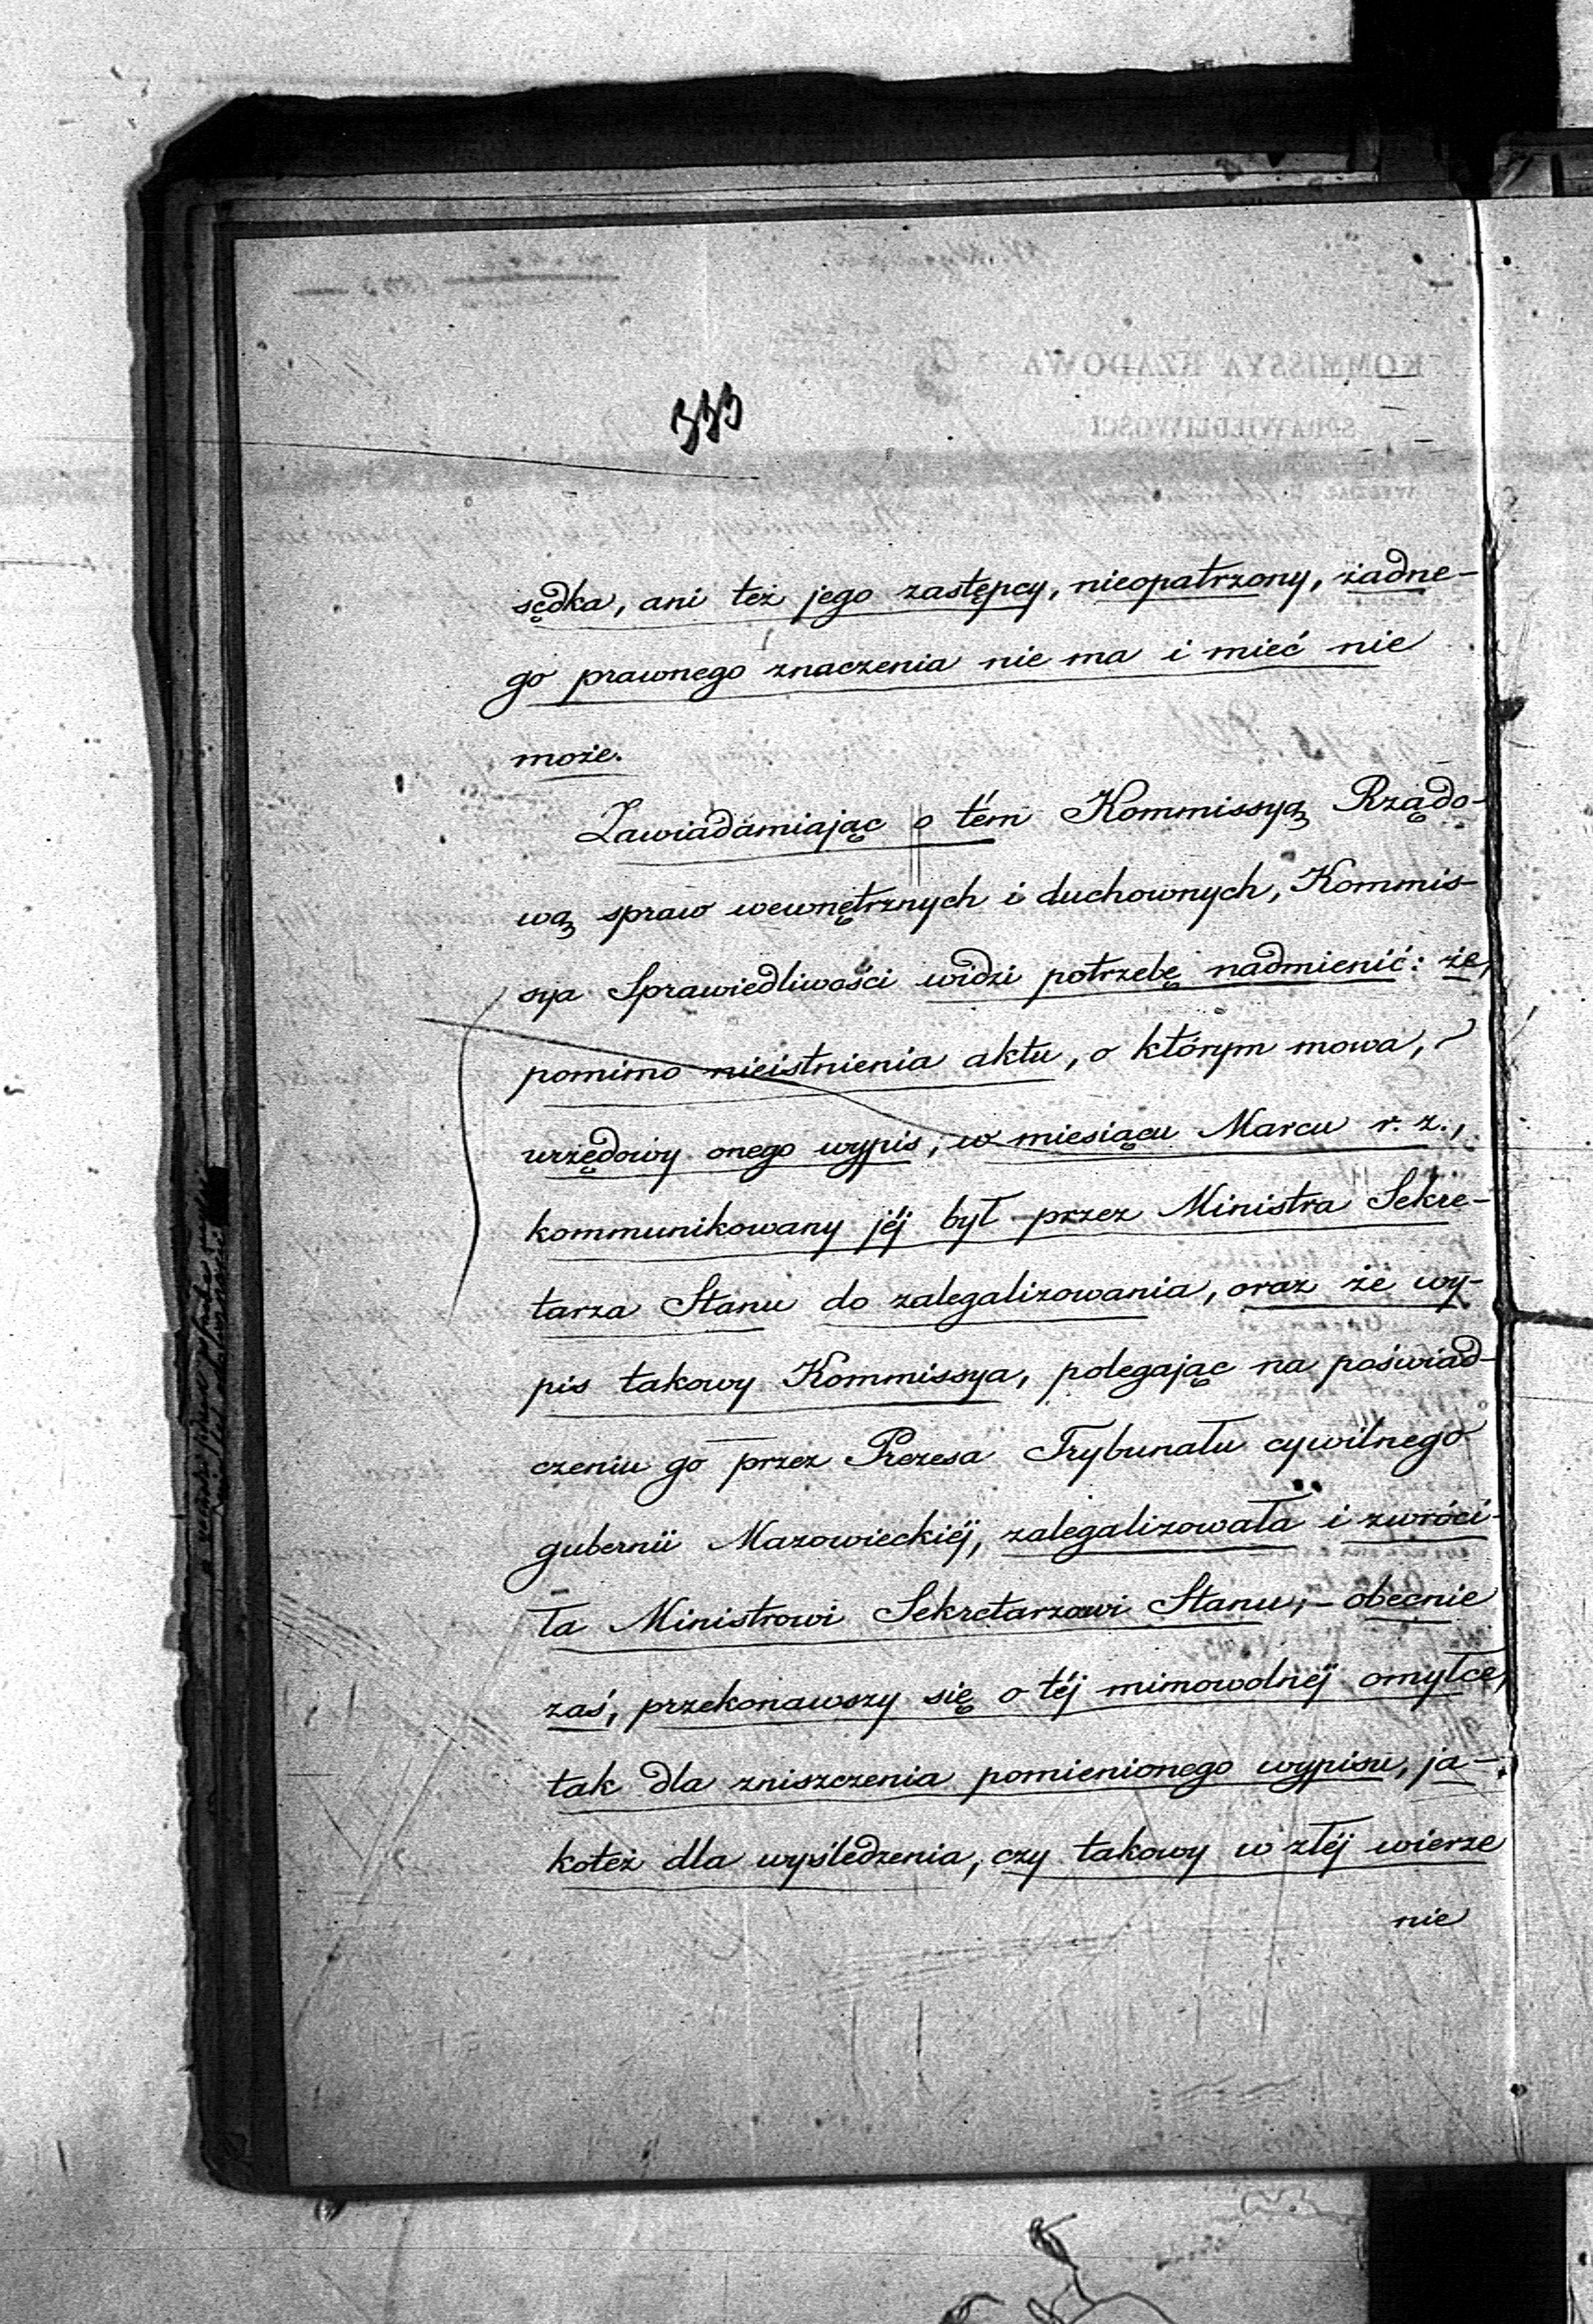 333
sędka, ani też jego zastępcy, nieopatrzony, żadne-
go prawnego znaczenia nie ma i mieć nie
może.
Zawiadamiając o tém Kommissyą Rządo-
wą spraw wewnętrznych i duchownych, Kommis-
sya Sprawiedliwości widzi potrzebę nadmienić: że,
pomimo nieistnienia aktu, o którym mowa,
urzędowy onego wypis, w miesiącu Marcu r. z.,
kommunikowany jéj był przez Ministra Sekre-
tarza Stanu do zalegalizowania, oraz że wy-
pis takowy Kommissya, polegając na poświad-
czeniu go przez Prezesa Trybunału cywilnego
gubernii Mazowieckiéj, zalegalizowała i zwróci-
ła Ministrowi Sekretarzowi Stanu, – obecnie
zaś, przekonawszy się o téj mimowolnéj omyłce,
tak dla zniszczenia pomienionego wypisu, ja-
koteż dla wyśledzenia, czy takowy w złéj wierze
nie